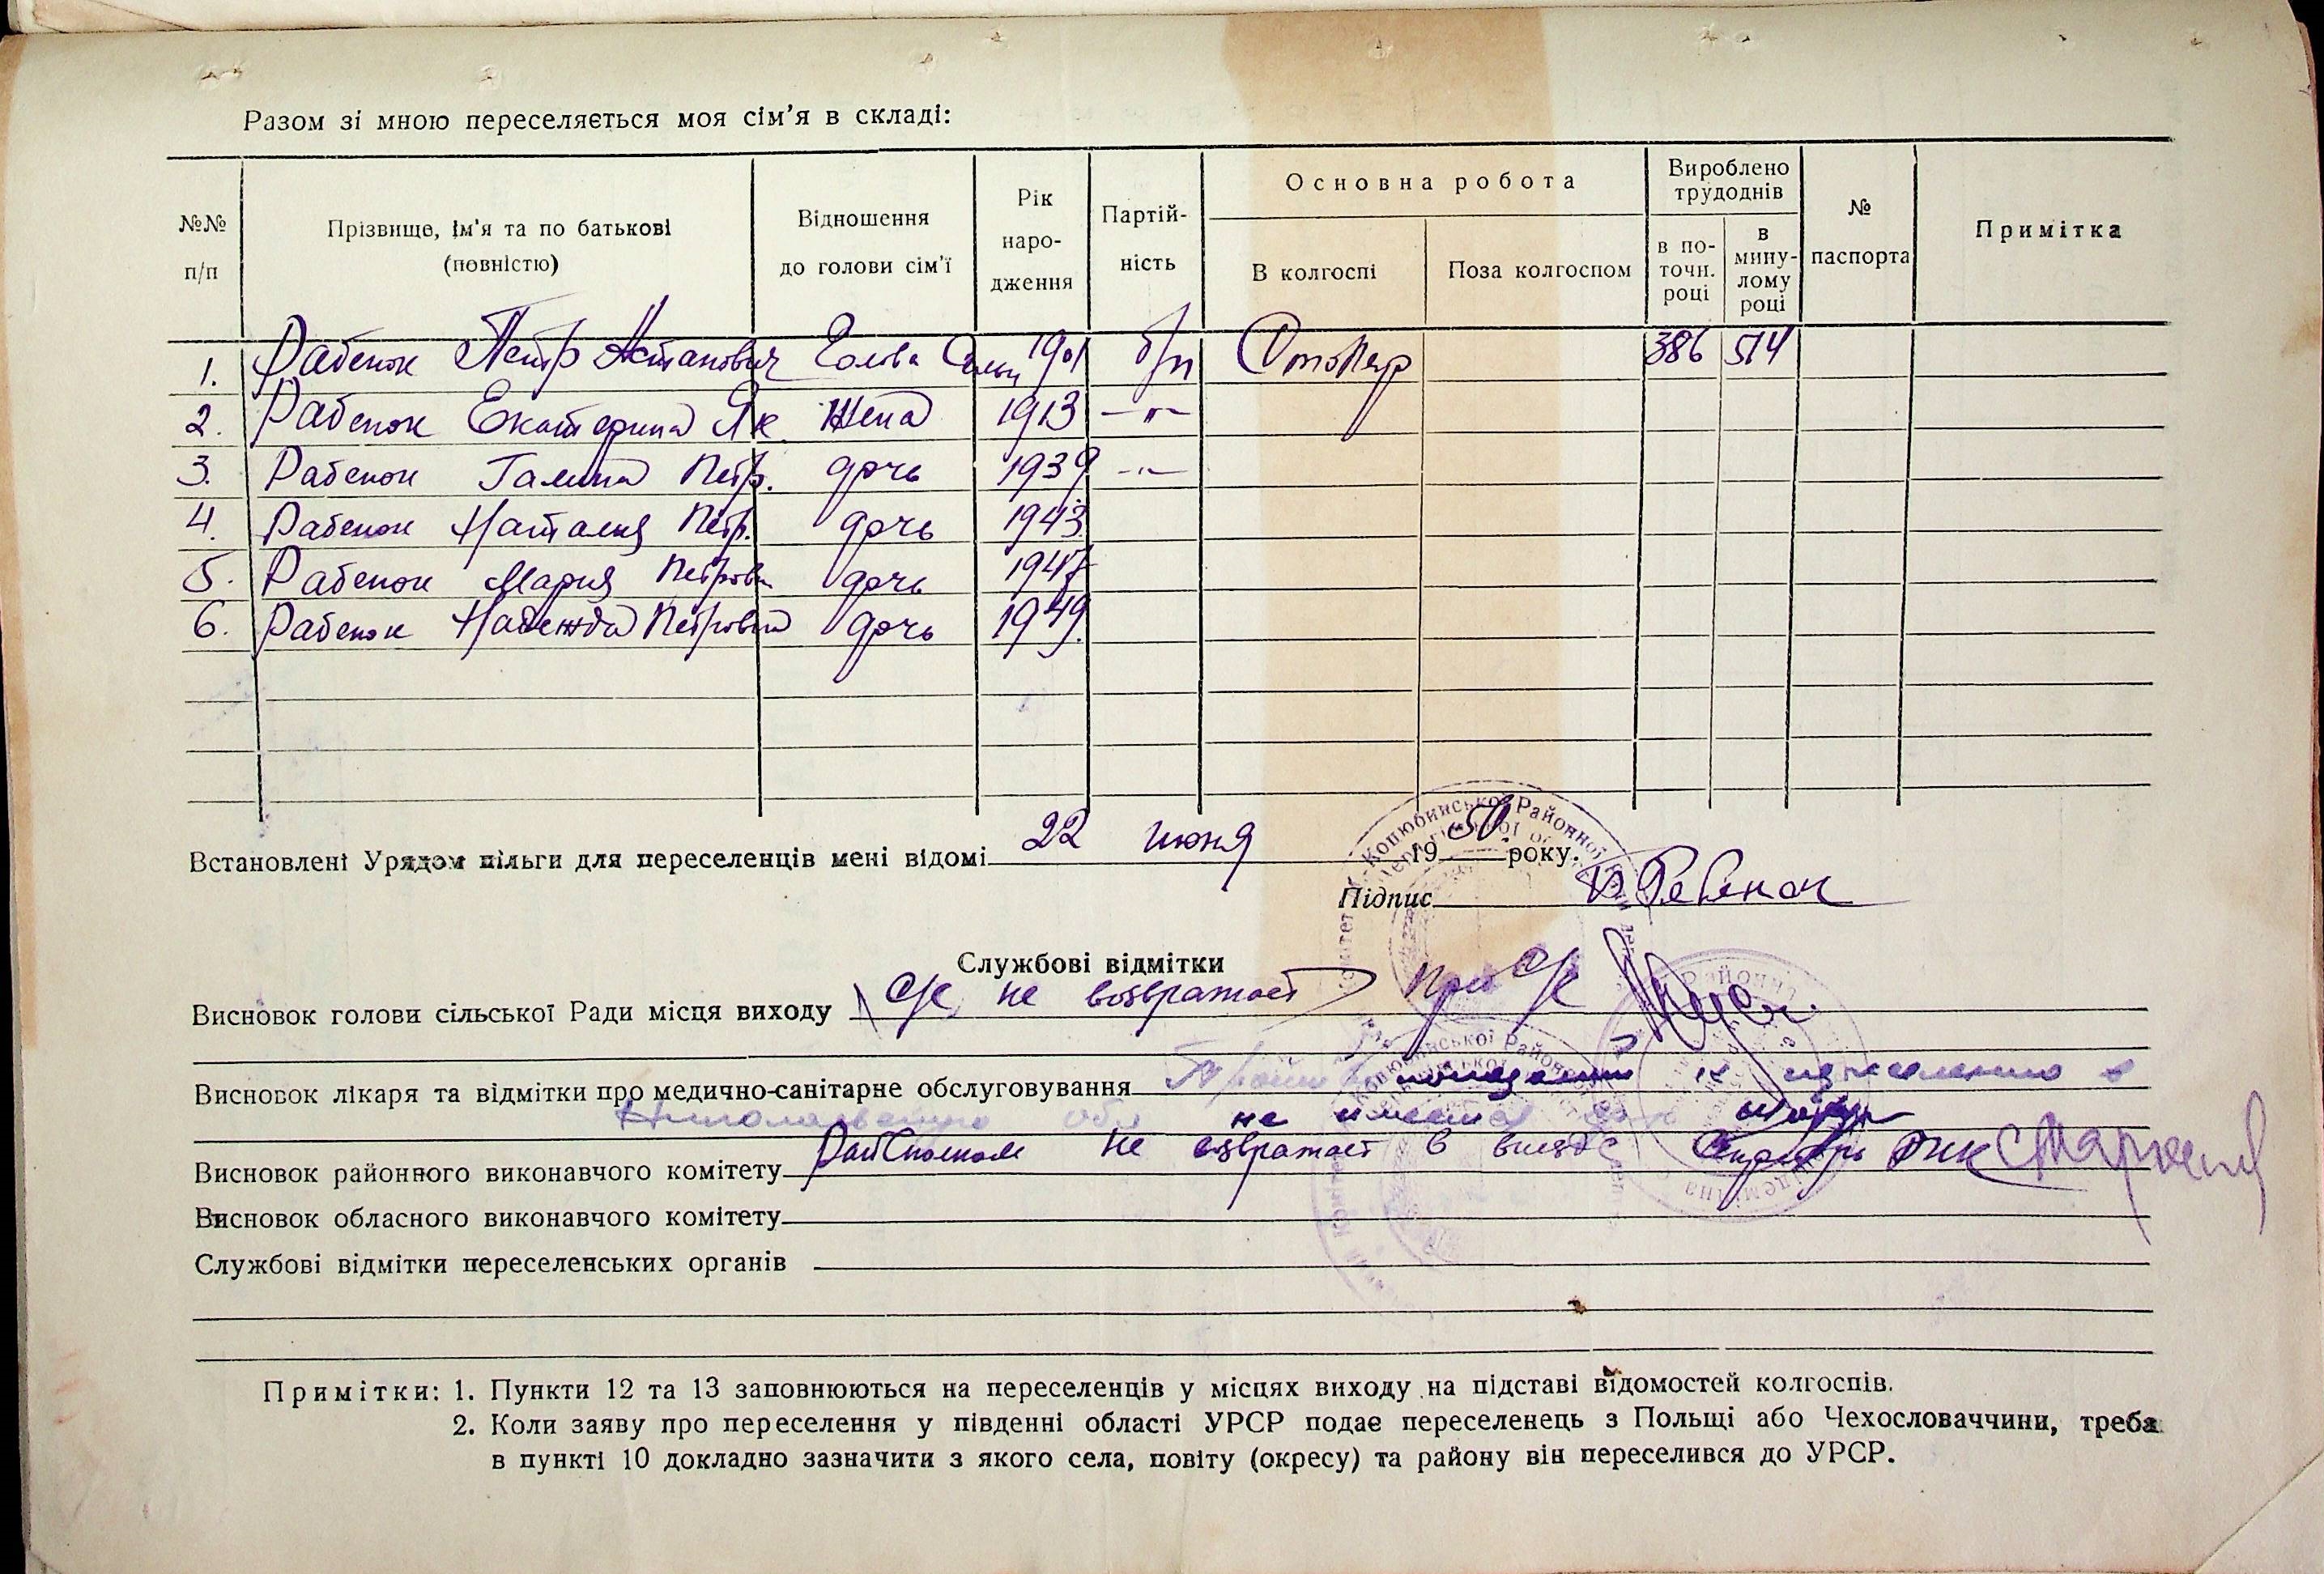 Разом зі мною переселяється моя сім'я в складі:
№№ п/п
Прізвище, ім'я та по батькові (повністю)
Відношення до голови сім'ї
Рік народження
Партійність
Основна робота
В колгоспі
Поза колгоспом
Вироблено трудоднів
в поточн. році
в минулому році
№ паспорта
Примітка
1. Рабенок Петр Астапович Голова Семьи 1901 б/п 386 514
2. Рабенок Екатерина Як Жена 1913 —"—
3. Рабенок Галина Петр. дочь 1939 —"—
4. Рабенок Наталия Петр. дочь 1943
5. Рабенок Мария Петровн дочь 1947
6. Рабенок Надежда Петровна дочь 1949
Встановлені Урядом пільги для переселенців мені відомі 22 июня 1950 року.
Підпис Рабенок
Службові відмітки
Висновок голови сільської Ради місця виходу С/С не возвражает Пред С/С
Висновок лікаря та відмітки про медично-санітарне обслуговування
Николаевскую обл не имеется
Висновок районного виконавчого комітету не возвражает в выезде Секретарь РИК
Висновок обласного виконавчого комітету
Службові відмітки переселенських органів
Примітки: 1. Пункти 12 та 13 заповнюються на переселенців у місцях виходу на підставі відомостей колгоспів.
2. Коли заяву про переселення у південні області УРСР подає переселенець з Польщі або Чехословаччини, треба
в пункті 10 докладно зазначити з якого села, повіту (окресу) та району він переселився до УРСР.